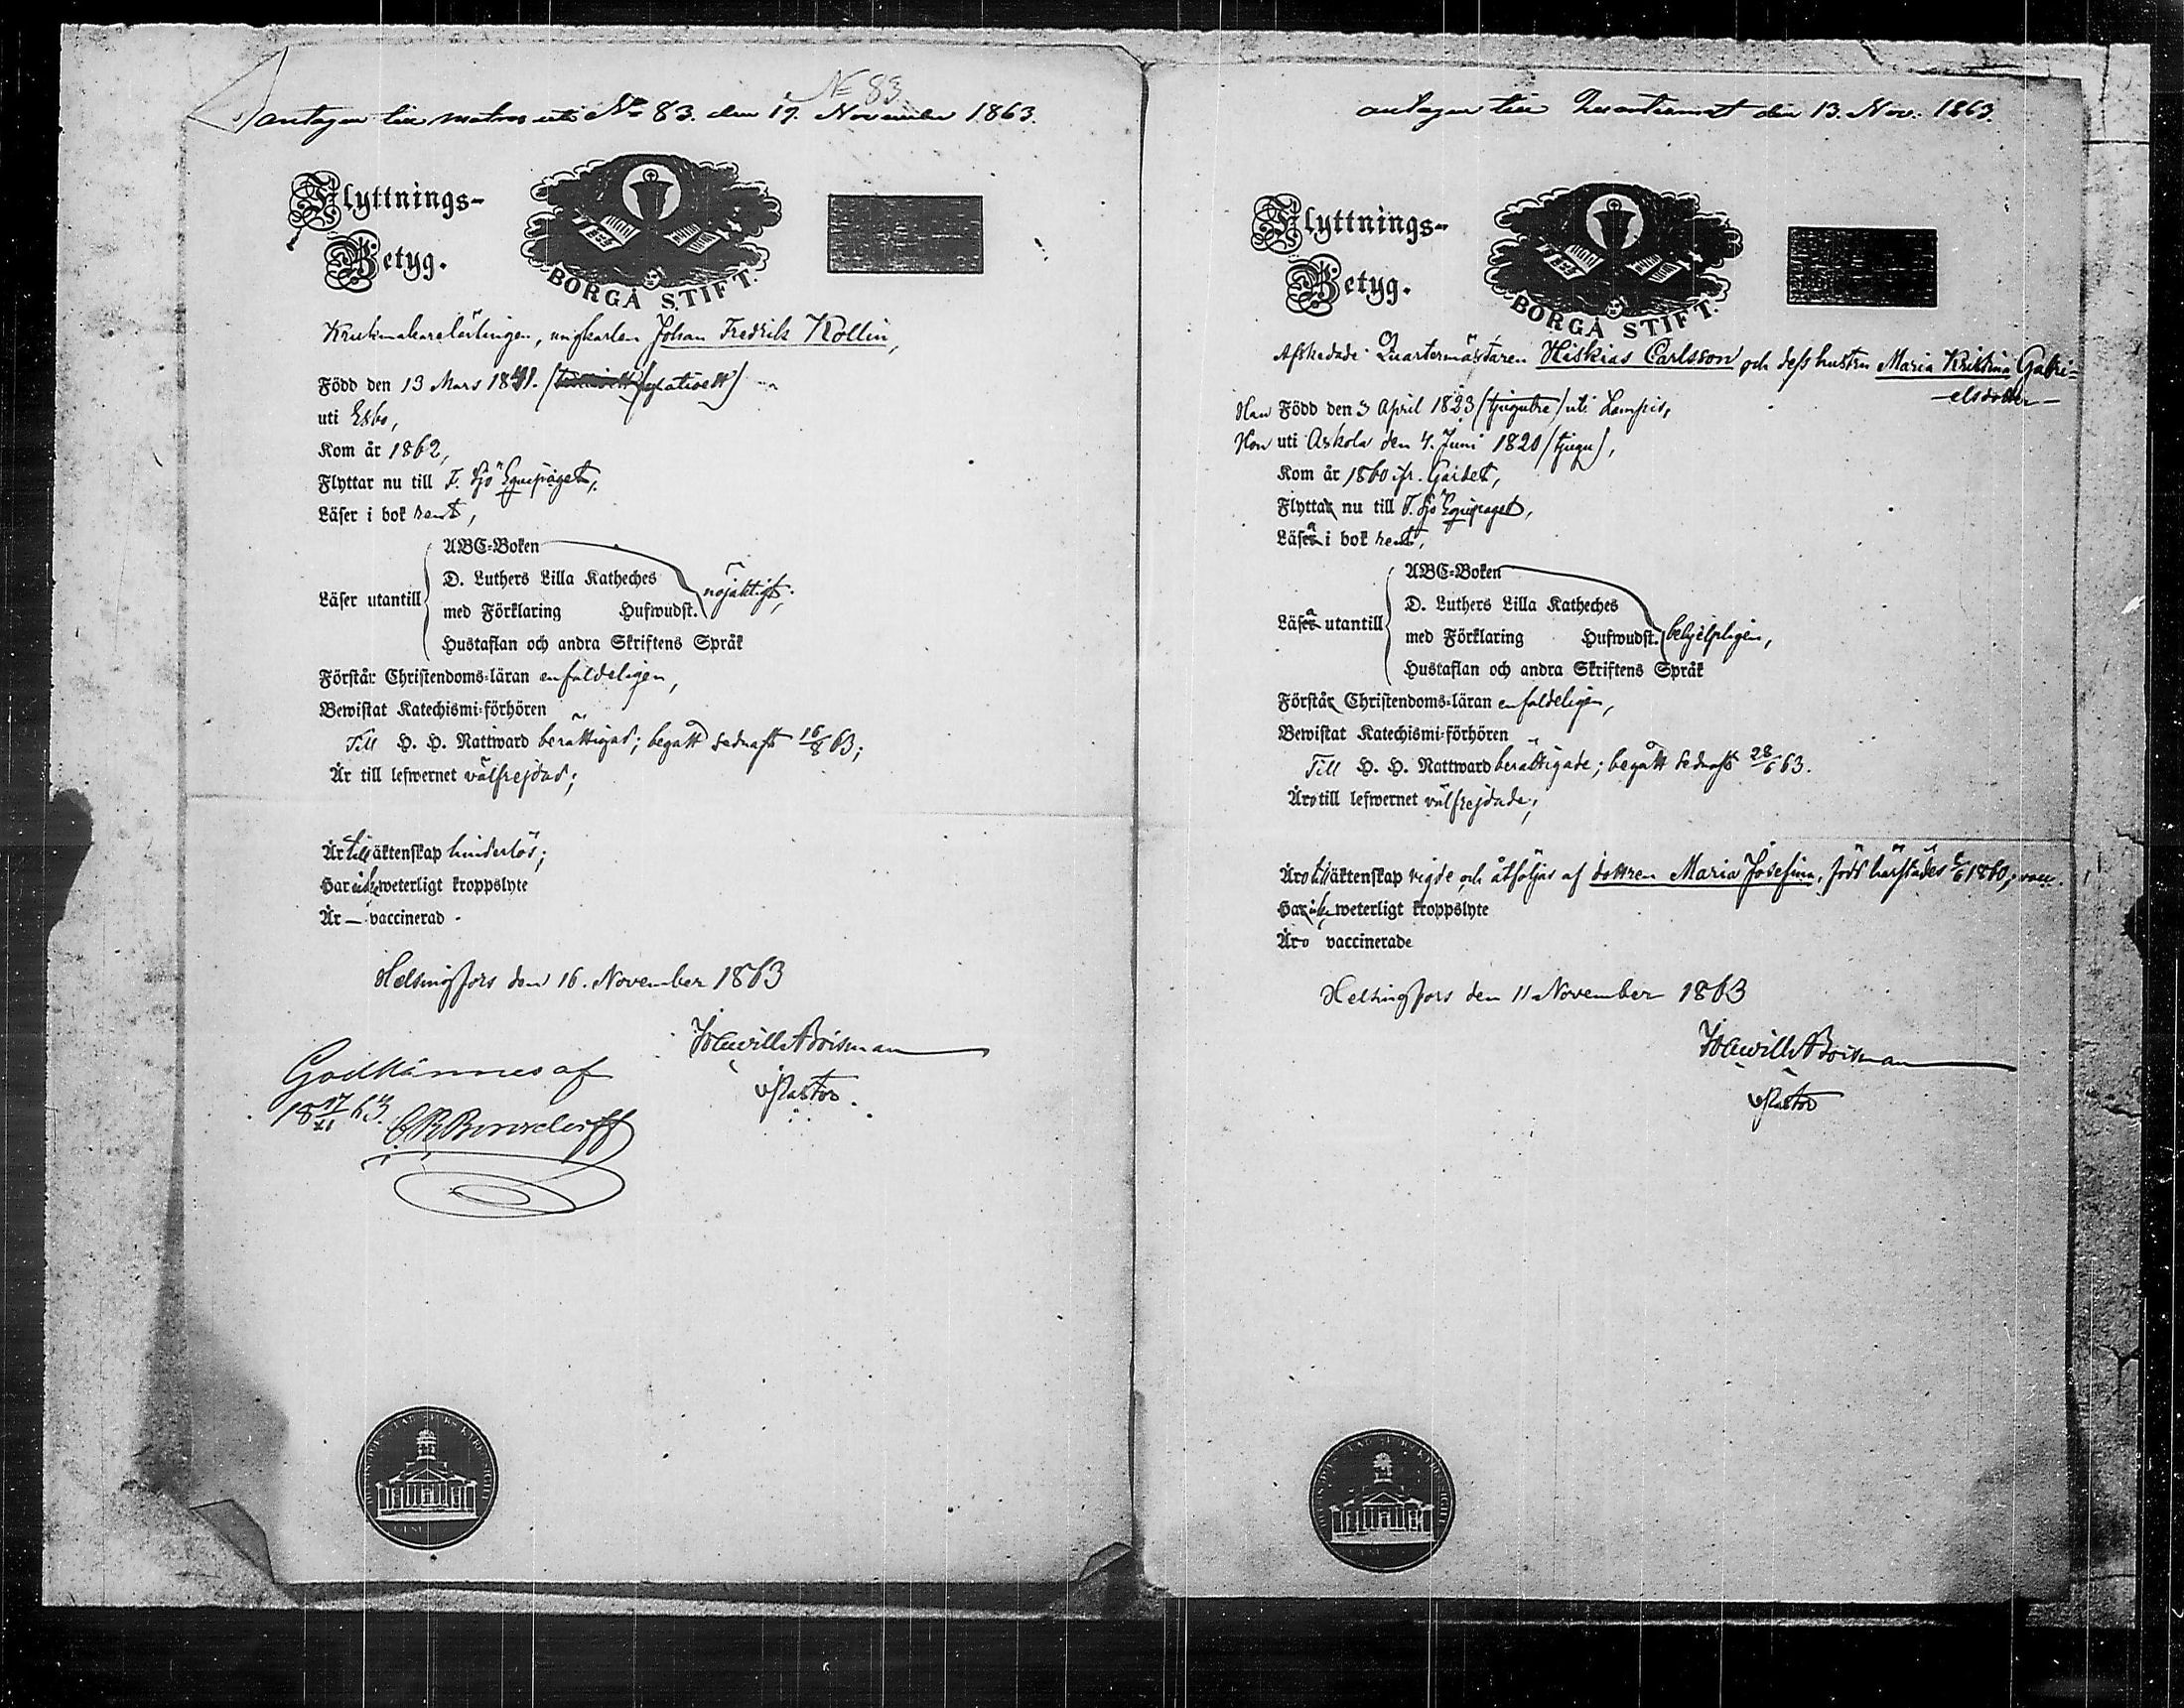 N° 83.
antagen till matros uti N° 83. den 19. November 1863.
Flyttnings-
Betyg.
BORGÅ STIFT.
Krukmakarelärlingen, ungkarlen Johan Fredrik Kollin,
Född den 13 Mars 1841.
uti Esbo,
Kom år 1862,
Flyttar nu till F. Sjö Equipaget,
Läser i bok rent,
Läser utantill
ABC-Boken
D. Luthers Lilla Katheches
med Förklaring Hufwudst.
Hustaflan och andra Skriftens Språk
nöjaktigt;
Förstår Christendoms-läran enfaldeligen,
Bewistat Katechismi-förhören
Till H. H. Nattward berättigad; begått sednast 16/8 63;
Är till lefwernet välfrejdad;
Är till äktenskap hinderlös;
Har icke weterligt kroppslyte
Är — vaccinerad.
Helsingfors den 16. November 1863
Pastor.
Godkännes af
18 17/11 63.
antagen till Quartermäst den 13. Nov. 1863.
Flyttnings-
Betyg.
BORGÅ STIFT.
Afskedade Quartermästaren Hiskias Carlsson och dess hustru Maria Kristina Gabri-
elsdotter
Han Född den 3 April 1823 (tjugutre) uti Lampis,
Hon uti Askola den 4. Juni 1820 (tjugu),
Kom år 1860 ifr. Gardet,
Flyttar nu till F. Sjö Equipaget,
Läsa i bok rent,
Läsa utantill
ABC-Boken
D. Luthers Lilla Katheches
med Förklaring Hufwudst.
Hustaflan och andra Skriftens Språk
behjelpligen,
Förstå Christendoms-läran enfaldeligen,
Bewistat Katechismi-förhören
Till H. H. Nattward berättigade; begått sednast 28/6 63.
Äro till lefwernet välfrejdade;
Äro till äktenskap vigde och åtföljas af dottren Maria Josefina, född härstädes 1860, vacc.
Ha icke weterligt kroppslyte
Äro vaccinerade
Helsingfors den 11 November 1863
Pastor